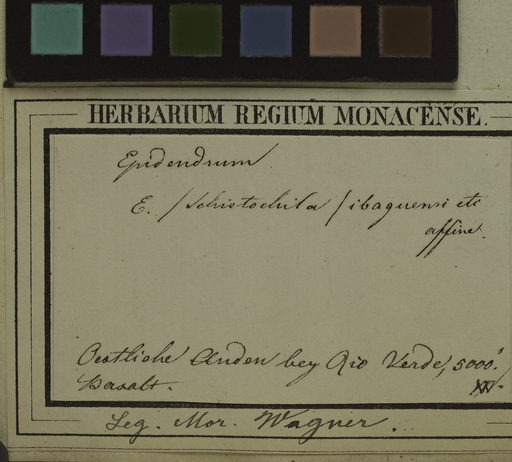 HERBARIUM REGIUM MONACENSE.
Epidendrum
E. / Schistochila / ibaguensi etc
affine.
Oestliche Anden bey Rio Verde, 5000'.
Basalt.
Leg. Mor. Wagner.